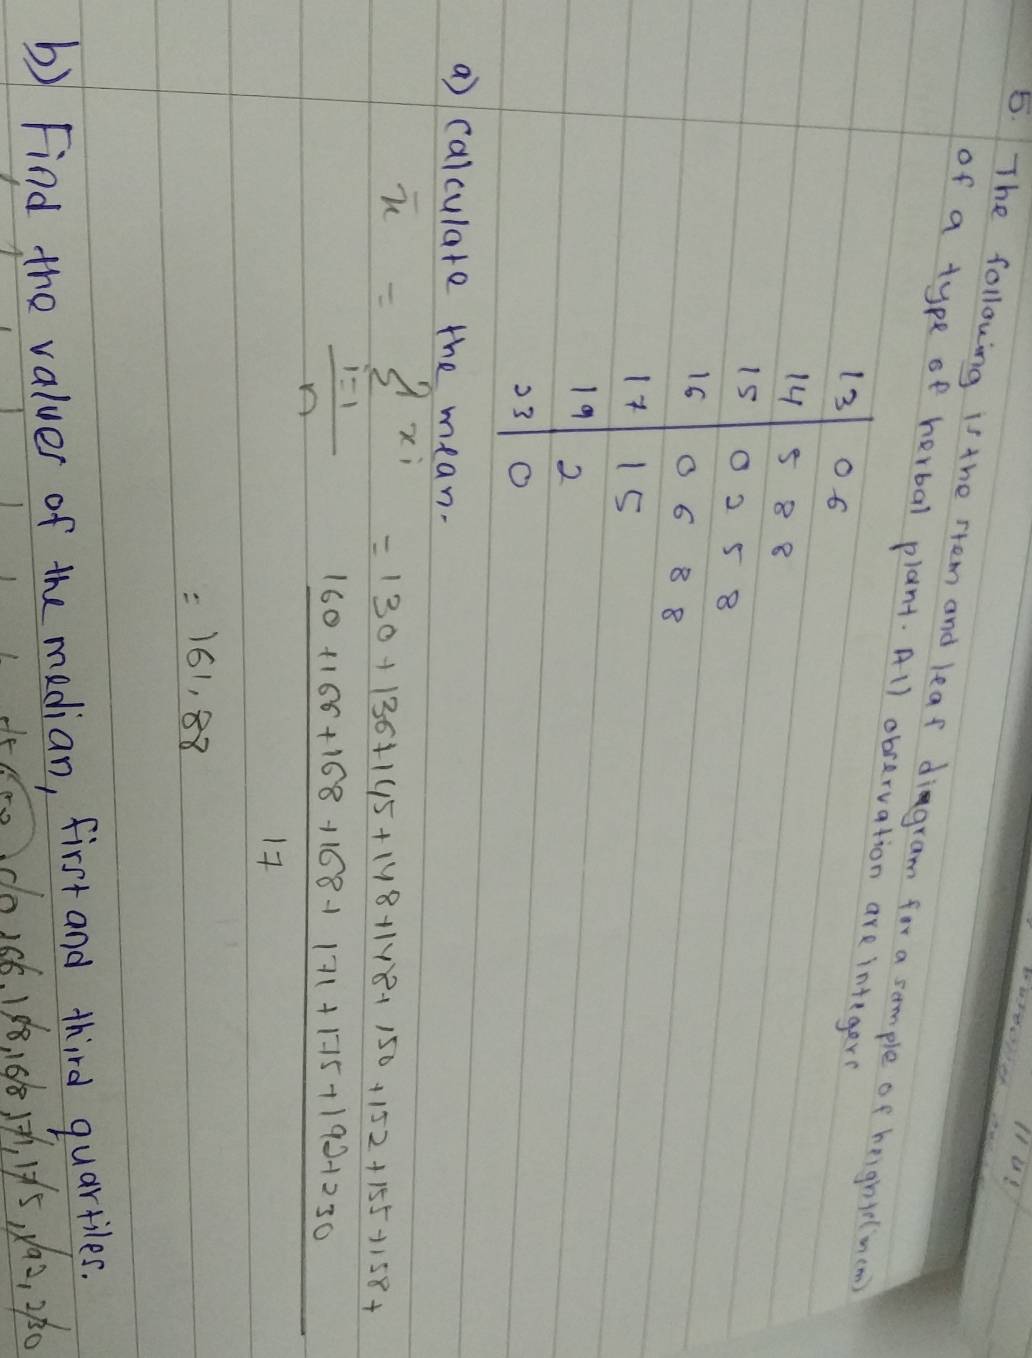 5. The following is the stem and leaf diagram for a sample of heights (in cm)
of a type of herbal plant. All observation are integers
13 | 0 6
14 | 5 8 8
15 | 0 2 5 8
16 | 0 6 8 8
17 | 1 5
19 | 2
23 | 0
a) calculate the mean.
x̄ = Σ xi = 130 + 136 + 145 + 148 + 148 + 150 + 152 + 155 + 158 +
i=1 160 + 166 + 168 + 168 + 171 + 175 + 192 + 230
n 17
= 161,88
b) Find the values of the median, first and third quartiles.
166, 168, 168, 171, 175, 192, 230